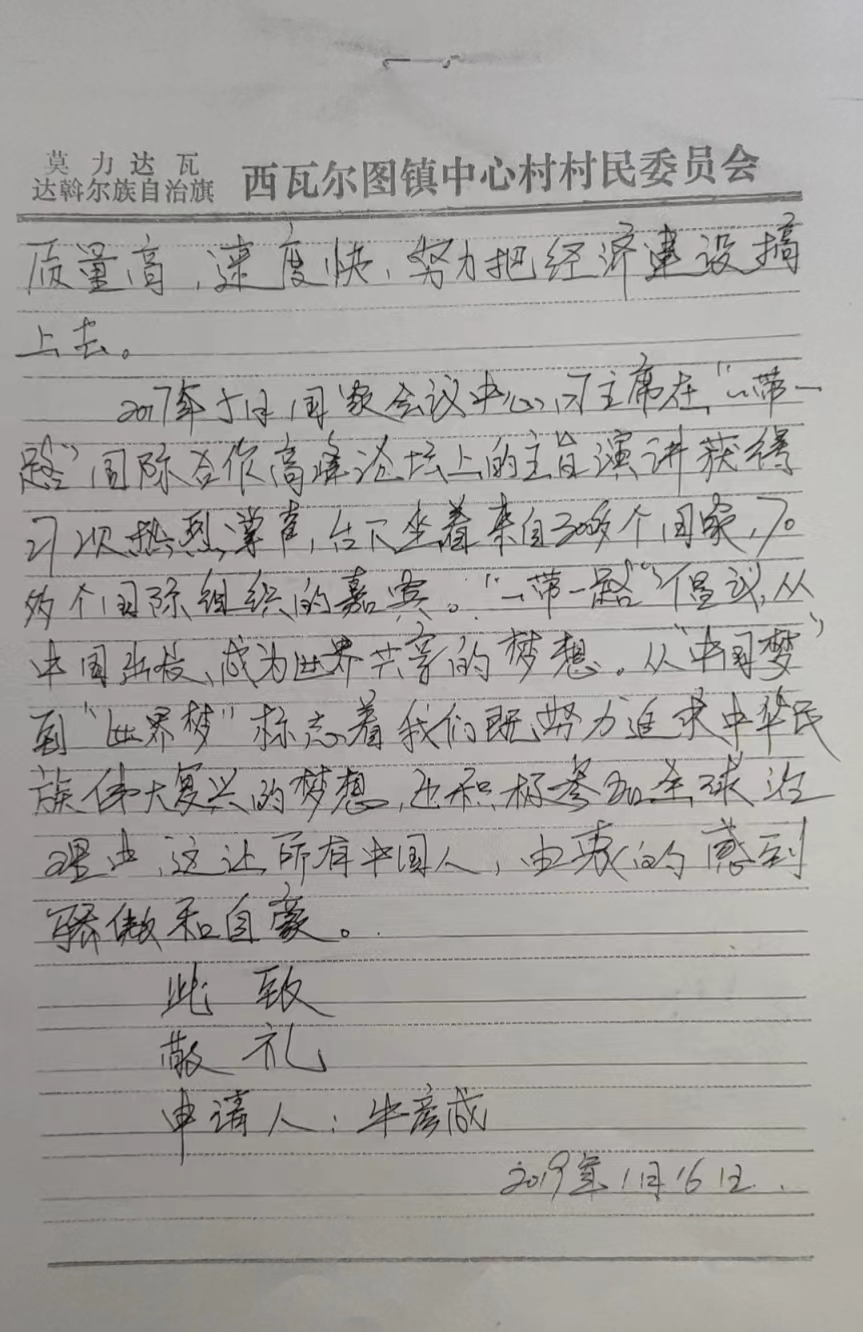 莫力达瓦
达斡尔族自治旗 西瓦尔图镇中心村村民委员会
质量高,速度快,努力把经济建设搞
上去。
2017年5月国家会议中心,习主席在"一带一
路"国际合作高峰论坛上的主旨演讲获得
27次热烈掌声,台下坐着来自30多个国家,70
多个国际组织的嘉宾。"一带一路"倡议,从
中国出发,成为世界共享的梦想。从"中国梦"
到"世界梦"标志着我们既努力追求中华民
族伟大复兴的梦想,还积极参加全球治
理中,这让所有中国人,由衷的感到
骄傲和自豪。
此致
敬礼
申请人:牛彦成
2019年1月16日.